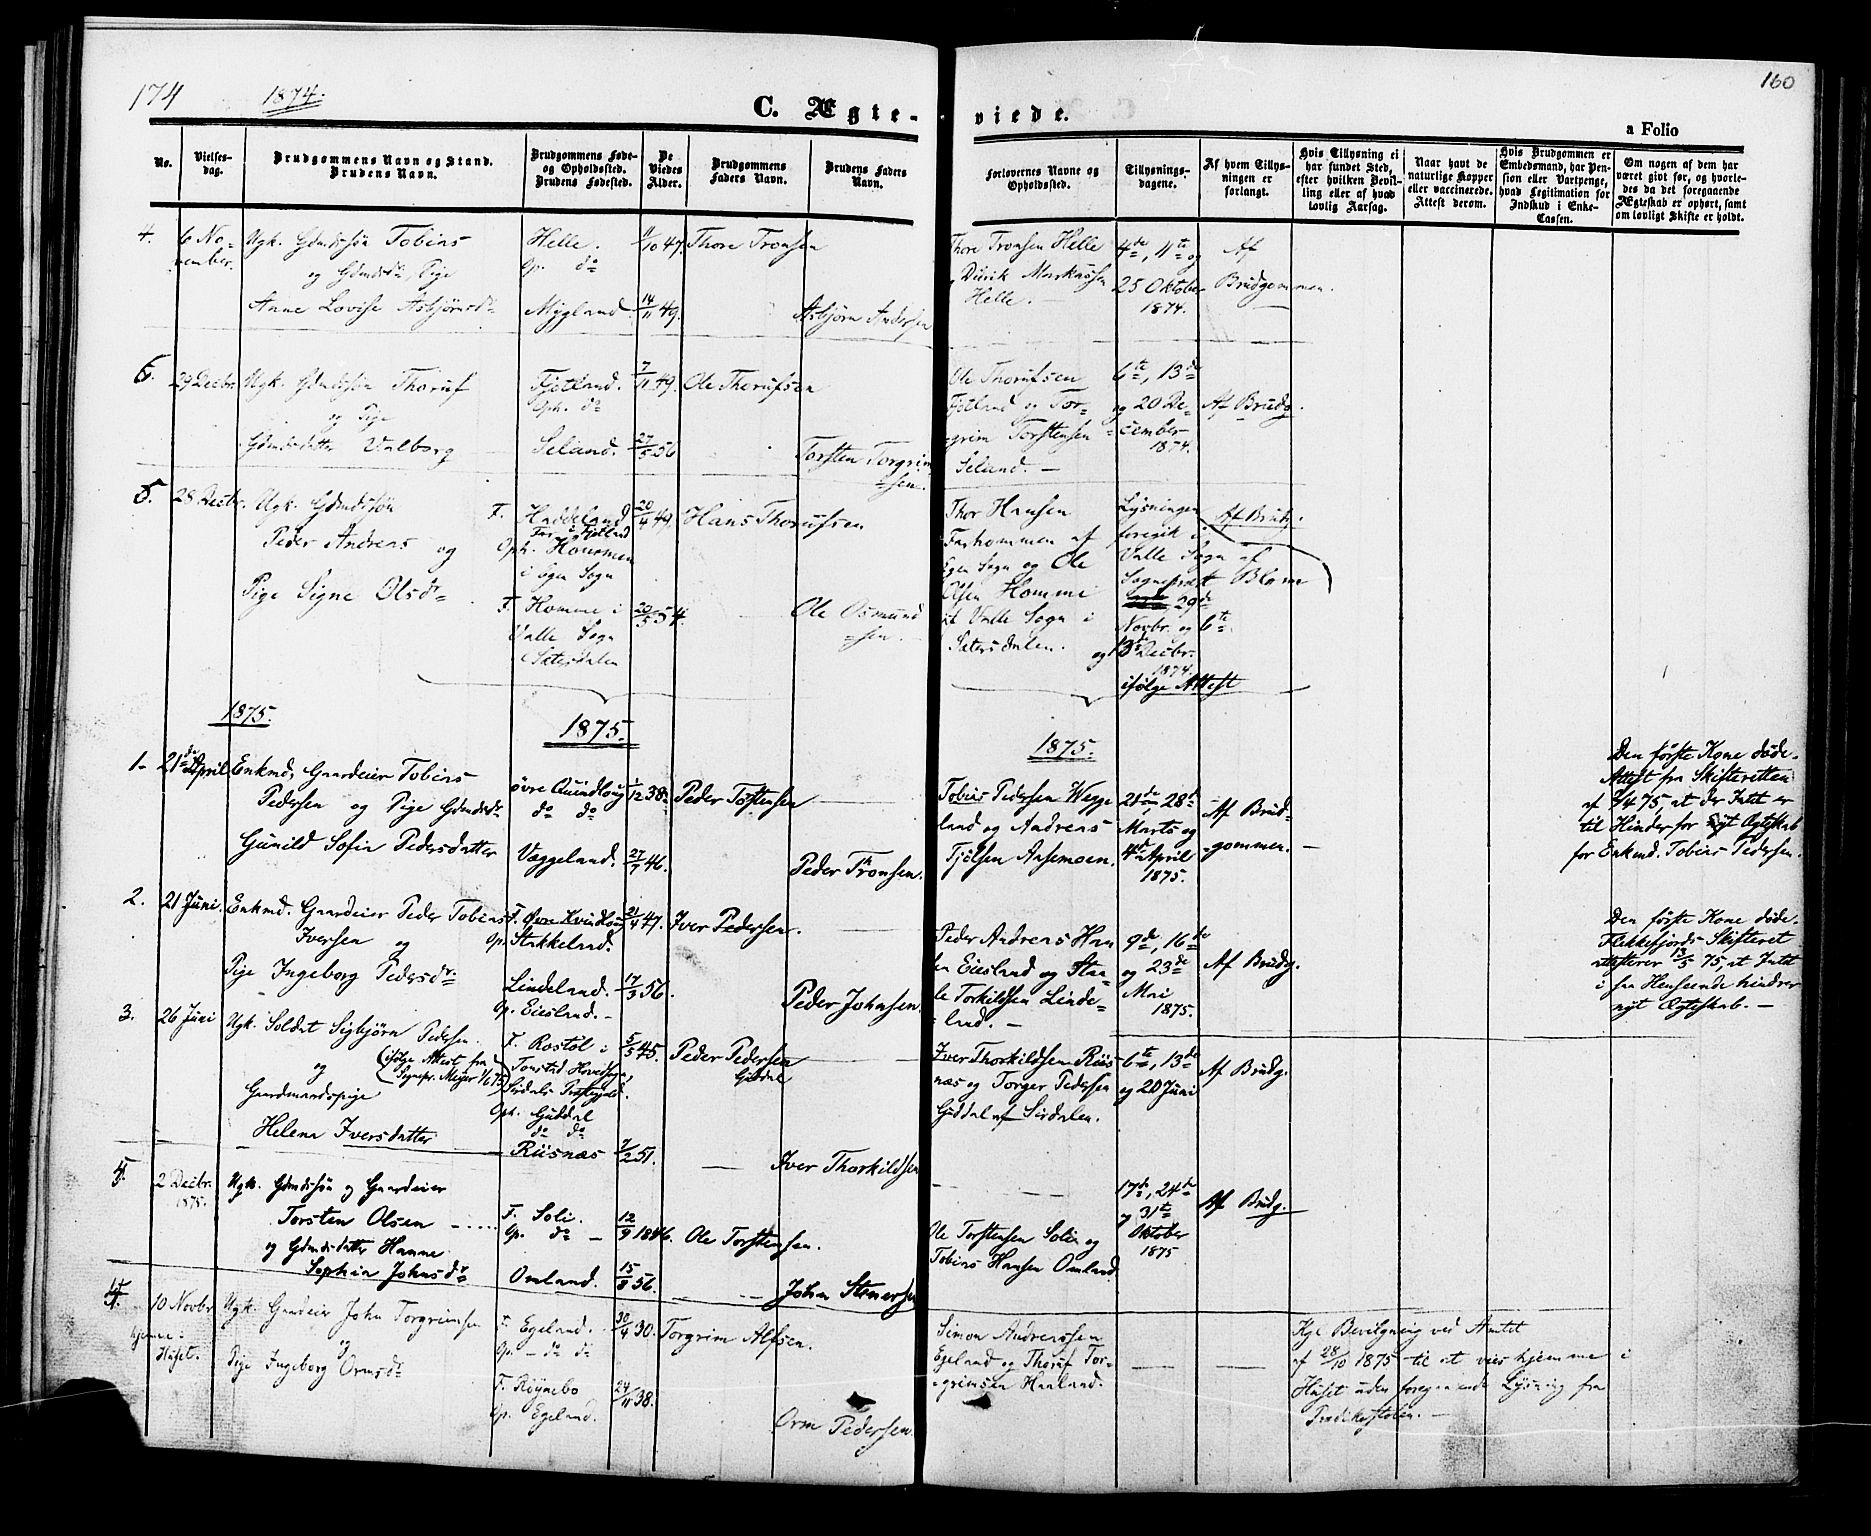 174
1874.
C. Ægte-
viede.
160
a Folio
No.
Vielses-
dag.
Brudgommens Navn og Stand.
Brudens Navn.
Brudgommens Føde-
og Opholdssted.
Brudens Fødested.
De
Viedes
Alder.
Brudgommens
Faders Navn.
Brudens Faders
Navn.
Forlovernes Navne og
Opholdssted.
Tillysnings-
dagene.
Af hvem Tillys-
ningen er
forlangt.
Hvis Tillysning ei
har fundet Sted,
efter hvilken Bevil-
ling eller af hvad
lovlig Aarsag.
Naar havt de
naturlige Kopper
eller vaccinerede.
Attest derom.
Hvis Brudgommen er
Embedsmand, har Pen-
sion eller Vartpenge,
hvad Legitimation for
Indskud i Enke-
Cassen.
Om nogen af dem har
været givt før, og hvorle-
des da det foregaaende
Ægteskab er ophørt, samt
om lovligt Skifte er holdt.
4.
6 No-
vember.
Ugk. Gdmdssøn Tobias
og Gdmdsdr, Pige
Anne Lovise Asbjørnsdr
Helle.
Op. do
Mygland.
11/10 47.
14/11 49.
Thore Tronsen
Asbjørn Andersen
Thore Tronsen Helle
Dürik Markussen
Helle.
4de, 11te og
25 Oktober
1874.
Af
Brudgommen.
6.
29 Decbr
Ugk. Gdmdssøn Thoruf
og Pige
Gdmdsdatter Valborg
Fjotland.
Oph. do
Seland.
7/11 49.
27/5 56
Ole Thorufsen
Torsten Torgrim
sen.
Ole Thorufsen
Fjotland og Tor-
grim Torstensen
Seland. —
6te, 13de
og 20 De-
cember
1874.
Af Brudg.
5.
28 Decbr.
Ugk. Gdmdssøn
Peder Andreas og
Pige Signe Olsdr
F. Haddeland
Oph. Honsmen
i Egen Sogn
F. Homme i
Valle Sogn
Sætersdalen
20/4 49.
20/5 54.
Hans Thorufsen
Ole Osmund
sen.
Thor Hansen
Farhommen af
Egen Sogn og Ole
Olsen Homme
i Valle Sogn i
Sætersdalen.
Lysningen
foregik i
Valle Sogn af
Sognepræst Blom
29de
Novbr. og 6te
og 13de Decbr.
1874
ifølge Attest
Af Brudg.
1875.
1875.
1875.
1.
21de April
Enkmd, Gaardeier Tobias
Pedersen og Pige Gdmdsdr
Gunild Sofia Pedersdatter
øvre Quindloug
do do
Væggeland.
1/12 38.
27/7 46.
Peder Tostensen
Peder Tronsen.
Tobias Pedersen Wegge
land og Andreas
Tjølsen Aasemoen.
21de 28de
Marts og
4de April
1875.
Af Brud-
gommen. —
Den første Kone døde.
Attest fra Skifteretten
af 2/4 75, at der Intet er
til Hinder for nyt Ægteskab
for Enkmd. Tobias Pedersen.
2.
21 Juni.
Enkmd. Gaardeier Peder Tobias
Iversen og
Pige Ingeborg Pedersdr
F. Øvre Kvindloug
Op. Stakkeland.
Lindeland.
Op. Eiesland.
21/4 47.
17/3 56.
Iver Pedersen.
Peder Johnsen.
Peder Andreas Han
sen Eiesland og Staa
le Torkildsen Linde-
land. —
9de, 16de
og 23de
Mai
1875.
Af Brudg.
Den første Kone døde.
Flekkefjords Skifteret
attesterer 13/5 75, at Intet
i saa Henseende hindrer
nyt Ægteskab. —
3.
26 Juni
Ugk. Soldat Sigbjørn Pedersen.
og (ifølge Attest fra
Sognepr. Meyer 1/6 75)
Gaardmandspige
Helena Iversdatter
F. Rostøl i
Tonstad Hovedsogn,
Sirdals Præstegjeld.
Oph. Guddal
do do
Riisnæs
5/5 45.
7/2 51.
Peder Pedersen
Guddal
Iver Thorkildsen
Iver Thorkildsen Riis
næs og Torger Pedersen
Guddal af Sirdalen.
6te, 13de
og 20 Juni
Af Brudg.
5.
2 Decbr.
1875.
Ugk. Gdmdssøn og Gaardeier
Torsten Olsen
og Gdmdsdatter Hanne
Sophia Johnsdr
F. Soli.
Op. do
Omland.
12/9 1846.
15/8 56.
Ole Torstensen.
John Stenersen
Ole Torstensen Solia og
Tobias Hansen Omland
17de, 24de
og 31te
Oktober
1875
Af Brudg.
4.
10 Novbr
hjemme i
Huset.
Ugk. Gaardeier John Torgrimsen
og
Pige Ingeborg Ormsdr
F. Egeland.
Op. do do
F. Røynebo
Op. Egeland.
30/4 30.
24/11 38.
Torgrim Alfsen.
Orm Pedersen.
Simon Andreassen
Egeland og Thoruf Tor-
grimsen Haaland.
Kgl Bevilgning ved Amtet
af 28/10 1875 til at vies hjemme i
Huset uden foregaaende Lysning fra
Prædikestolen. —